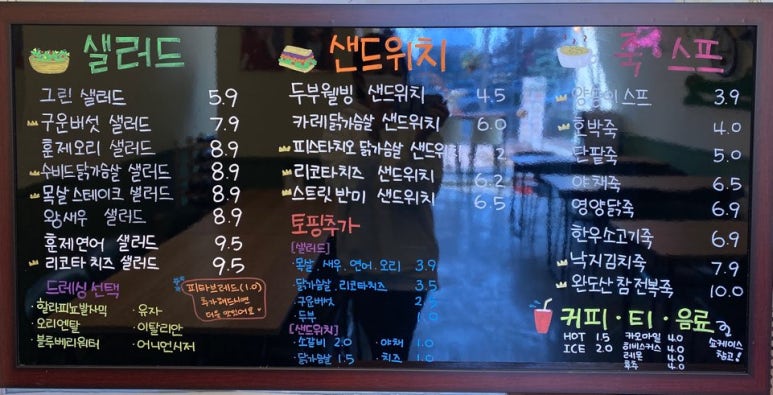 샐러드
그린 샐러드 5.9
구운버섯 샐러드 7.9
훈제오리 샐러드 8.9
수비드닭가슴살 샐러드 8.9
목살스테이크 샐러드 8.9
왕새우 샐러드 8.9
훈제연어 샐러드 9.5
리코타치즈 샐러드 9.5
드레싱 선택
할라피뇨발사믹 · 유자
오리엔탈 · 이탈리안
블루베리워터 · 어니언시저
피타브레드(1.0)
추가해드시면
더욱 맛있어요
샌드위치
두부웰빙 샌드위치 4.5
카레닭가슴살 샌드위치 6.0
피스타치오 닭가슴살 샌드위치
리코타치즈 샌드위치 6.2
스트릿반미 샌드위치 6.5
토핑추가
[샐러드]
· 목살 . 새우 . 연어 . 오리 3.9
· 닭가슴살 . 리코타치즈 3.5
· 구운버섯
· 두부 1.0
[샌드위치]
· 소갈비 2.0 · 야채 1.0
· 닭가슴살 1.5 · 치즈 1.0
죽 스프
양송이스프 3.9
호박죽 4.0
단팥죽 5.0
야채죽 6.5
영양닭죽 6.9
한우소고기죽 6.9
낙지김치죽 7.9
완도산 참 전복죽 10.0
커피 · 티 · 음료
HOT 1.5
ICE 2.0
카모마일 4.0
히비스커스 4.0
레몬 4.0
4.0
쇼케이스
참고!